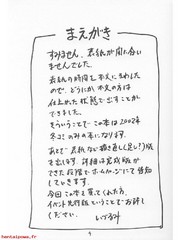 まえがき
すみません、表紙が間に合い
ませんでした。
表紙の時間を本文にまわした
ので、どうにか本文の方は
仕上がった状態で出すことが
できました。
そういうことで、この本は2002年
冬コミのみの本になります。
あとで、表紙など描き直し(足し?)版
を出します。詳細は完成版が
できた段階でホームページにて告知
していきます。
今回この本を買ってくれた方、
イベント先行版ということでお許し
ください。
4
hentaipawn.fr